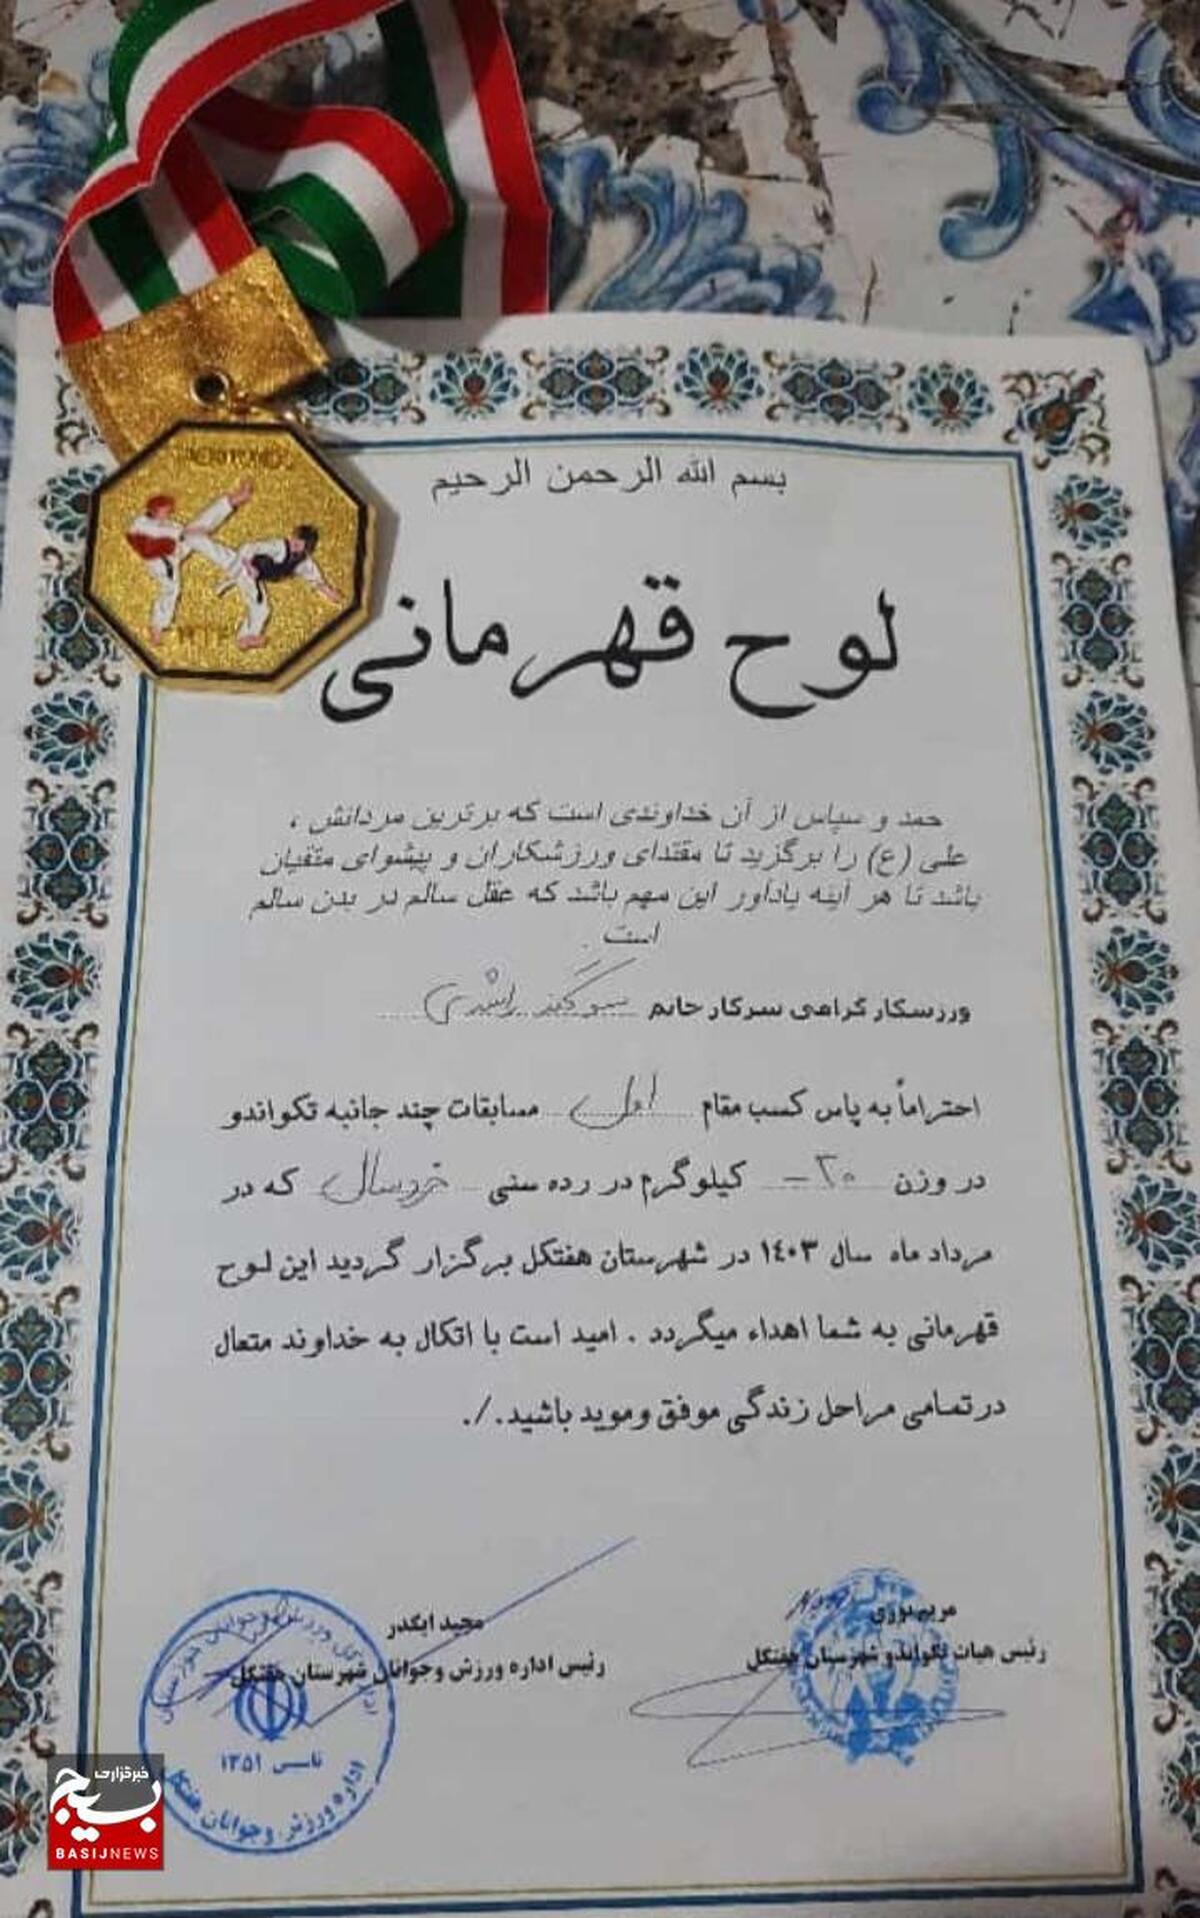 بسم الله الرحمن الرحیم
لوح قهرمانی
حمد و سپاس از آن خداوندی است که برترین مردانش ،
علی (ع) را برگزید تا مقتدای ورزشکاران و پیشوای متقیان
باشد تا هر آینه یادآور این مهم باشد که عقل سالم در بدن سالم
است .
ورزسکار گرامی سرکار خانم سوگند راشدی
احتراماً به پاس کسب مقام اول مسابقات چند جانبه تکواندو
در وزن ۲۰- کیلوگرم در رده سنی خردسال که در
مرداد ماه سال ۱٤۰۳ در شهرستان هفتکل برگزار گردید این لوح
قهرمانی به شما اهداء میگردد . امید است با اتکال به خداوند متعال
در تمامی مراحل زندگی موفق و موید باشید./.
مریم نوری
رئیس هیات تکواندو شهرستان هفتکل
مجید ایگدر
رئیس اداره ورزش و جوانان شهرستان هفتکل
تاسیس ۱۳۵۱
اداره ورزش و جوانان هفتکل
خبرگزاری
بسیج
BASIJNEWS